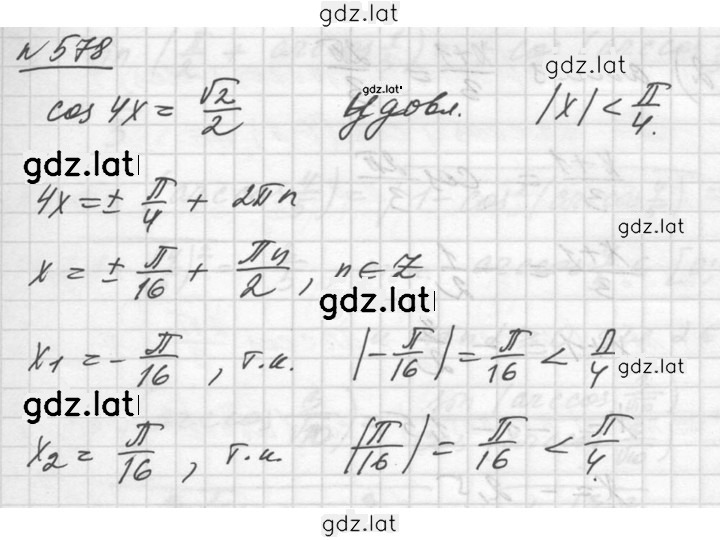 gdz.lat
№578
gdz.lat
cos 4x = √2/2 Удовл. |x| < π/4.
gdz.lat
gdz.lat
4x = ± π/4 + 2πn
gdz.lat
x = ± π/16 + πn/2, n ∈ Z
gdz.lat
x₁ = - π/16, т.к. |-π/16| = π/16 < π/4
gdz.lat
gdz.lat
x₂ = π/16, т.к. |π/16| = π/16 < π/4.
gdz.lat